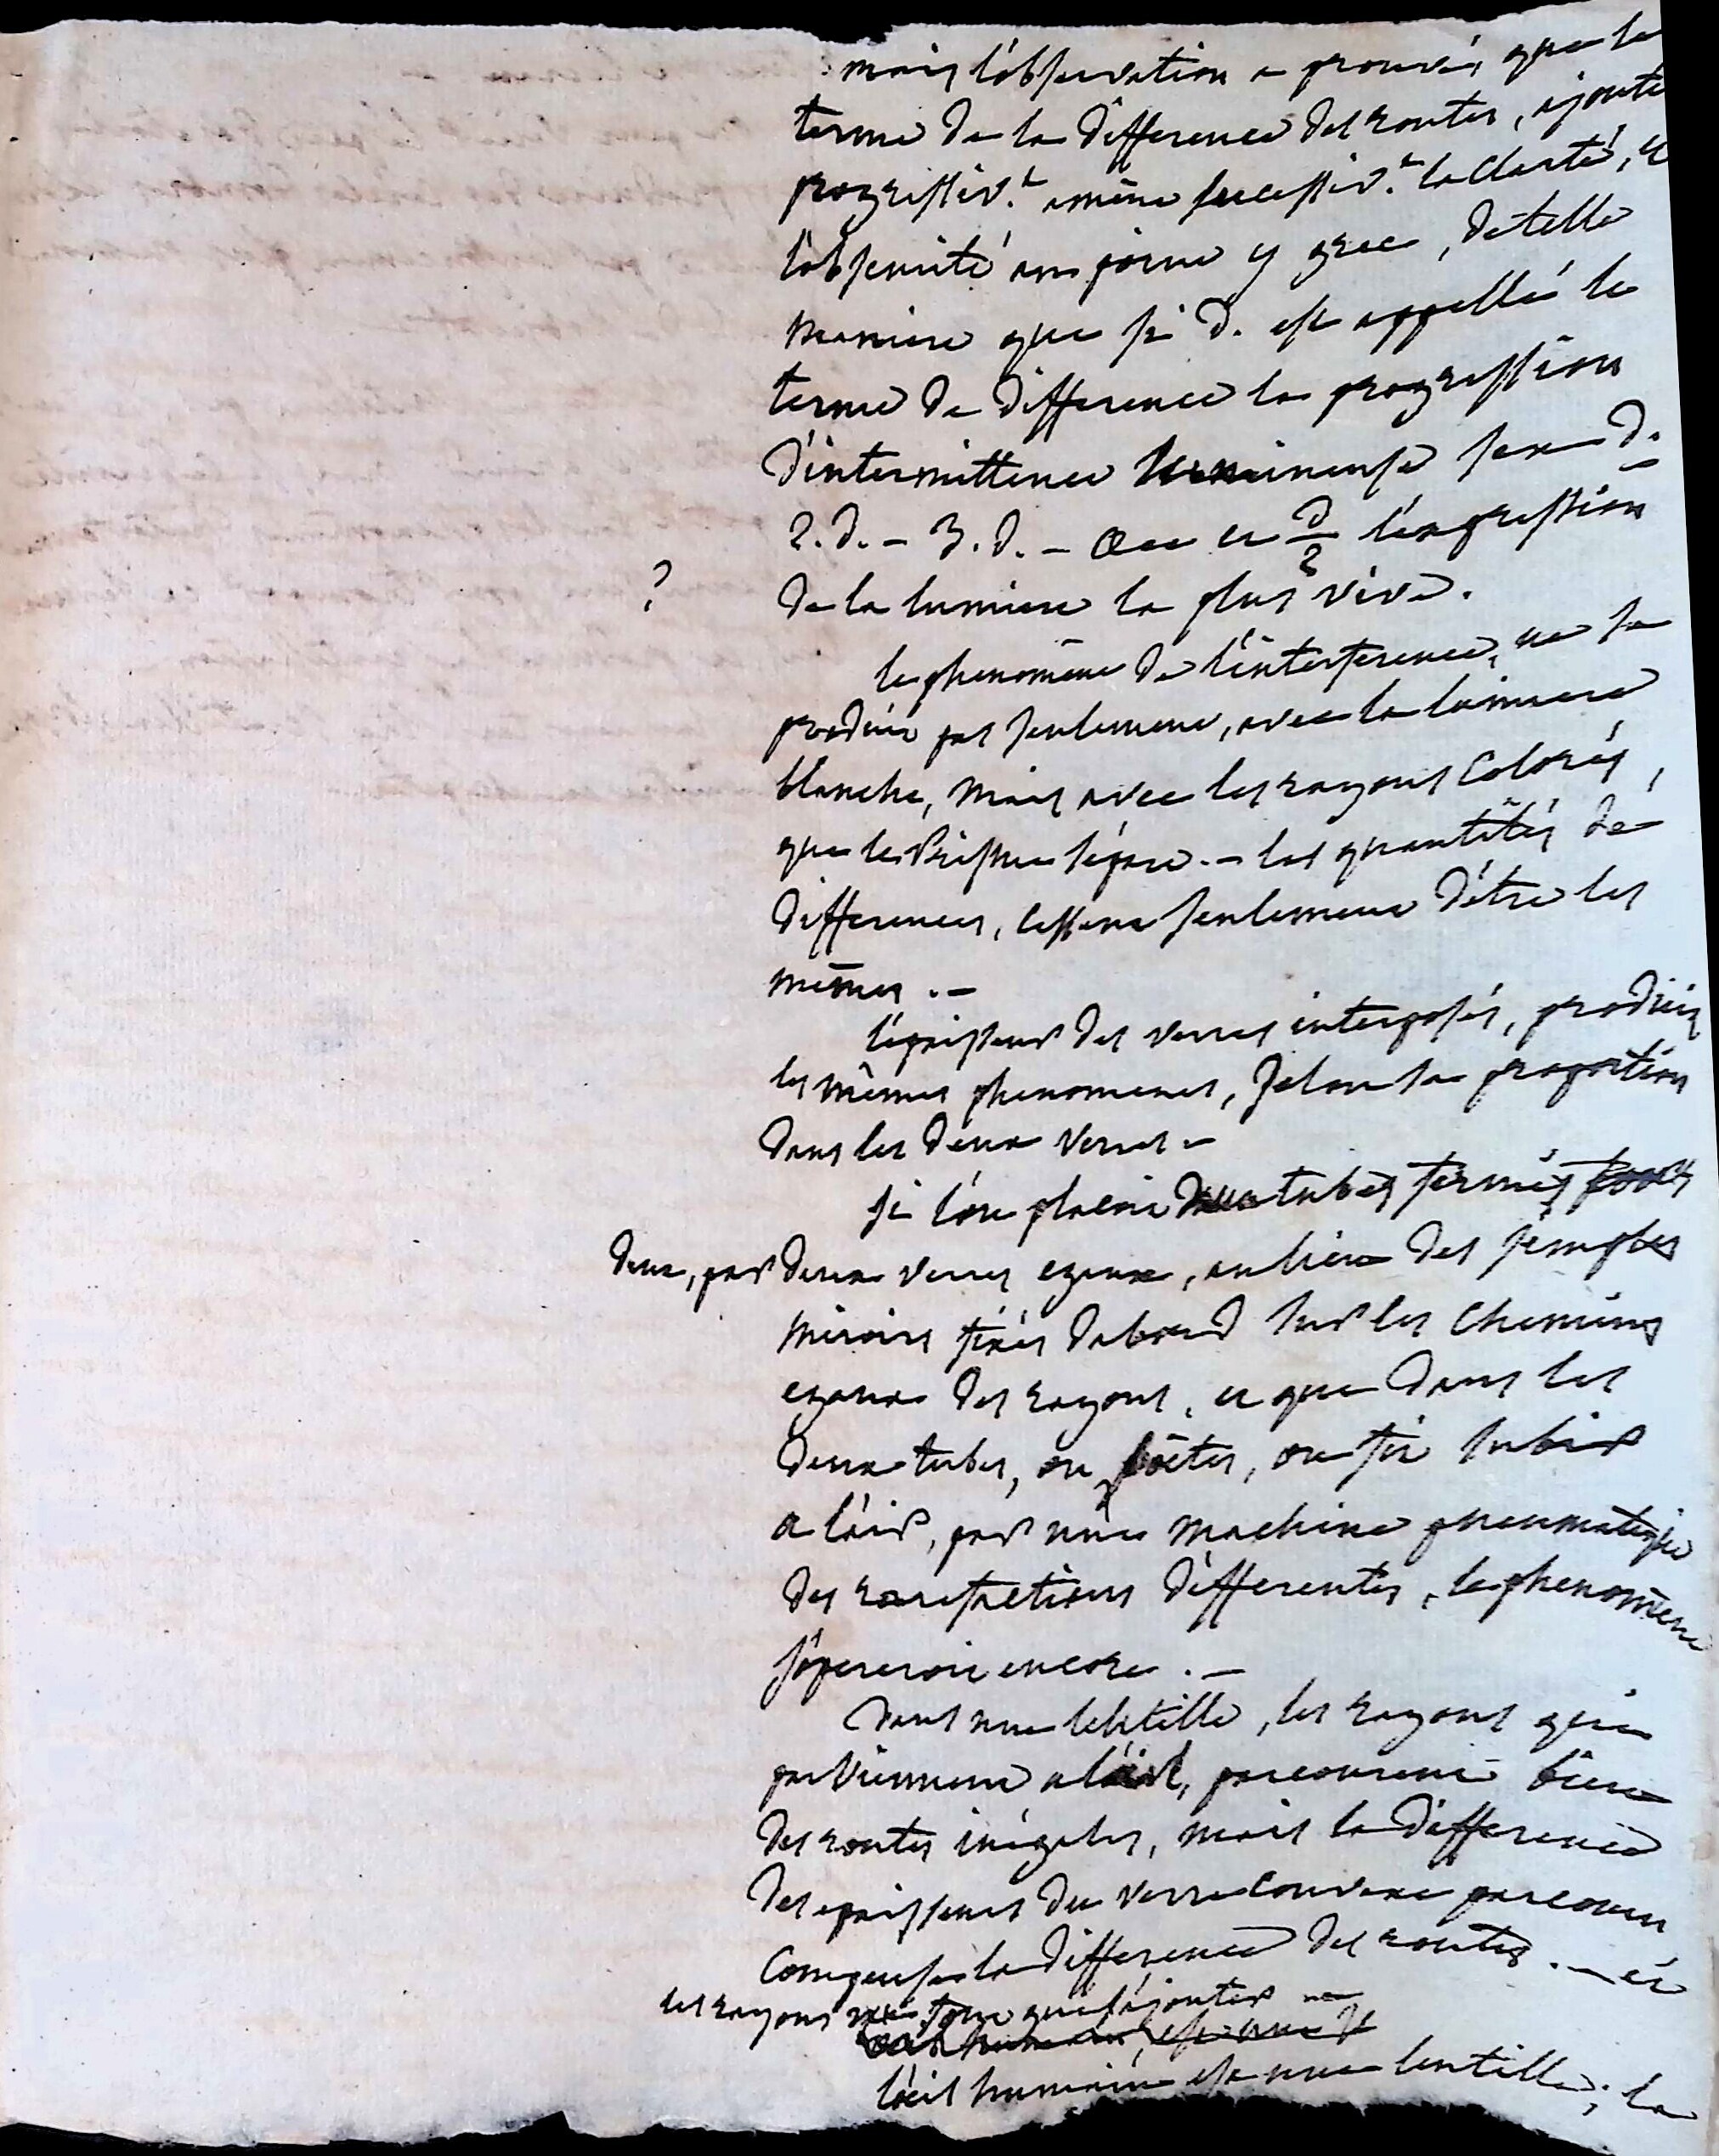 mais l'observation a prouvé, que le
terme de la difference des routes, ajouté
progressiv.t amène successiv.t la clarté, et
l'obscurité au point y grec, de telle
maniere que si d. est appellé le
terme de difference la progression
d'intermittence lumineuse sera d. -
2.d. - 3.d. - &c et d/2 l'expression
? de la lumiere la plus vive.
le phenomène de l'interference, ne se
produit pas seulement, avec la lumiere
blanche, mais avec les rayons colorés,
que le Prisme sépare. - les quantités de
differences, cessent seulement d'être les
mêmes. -
l'épaisseur des verres interposés, produit
les mêmes phenomenes, selon sa proportion
dans les deux verres -
si l'on placoit deux tubes fermés
deux, par deux verres egaux, au lieu des simples
miroirs fixés dabord sur les chemins
egaux des rayons, et que dans les
deux tubes, ou boëtes, on fit subir
a l'air, par une machine pneumatique
des rarefactions differentes, le phenomène
s'opereroit encore. -
dans une lentille, les rayons qui
parviennent a l'œil, parcourent bien
des routes inégales, mais la difference
des epaisseurs du verre convexe parcouru
compense la difference des routes. - et
les rayons ne font que s'ajouter
l'œil humain est une lentille; la